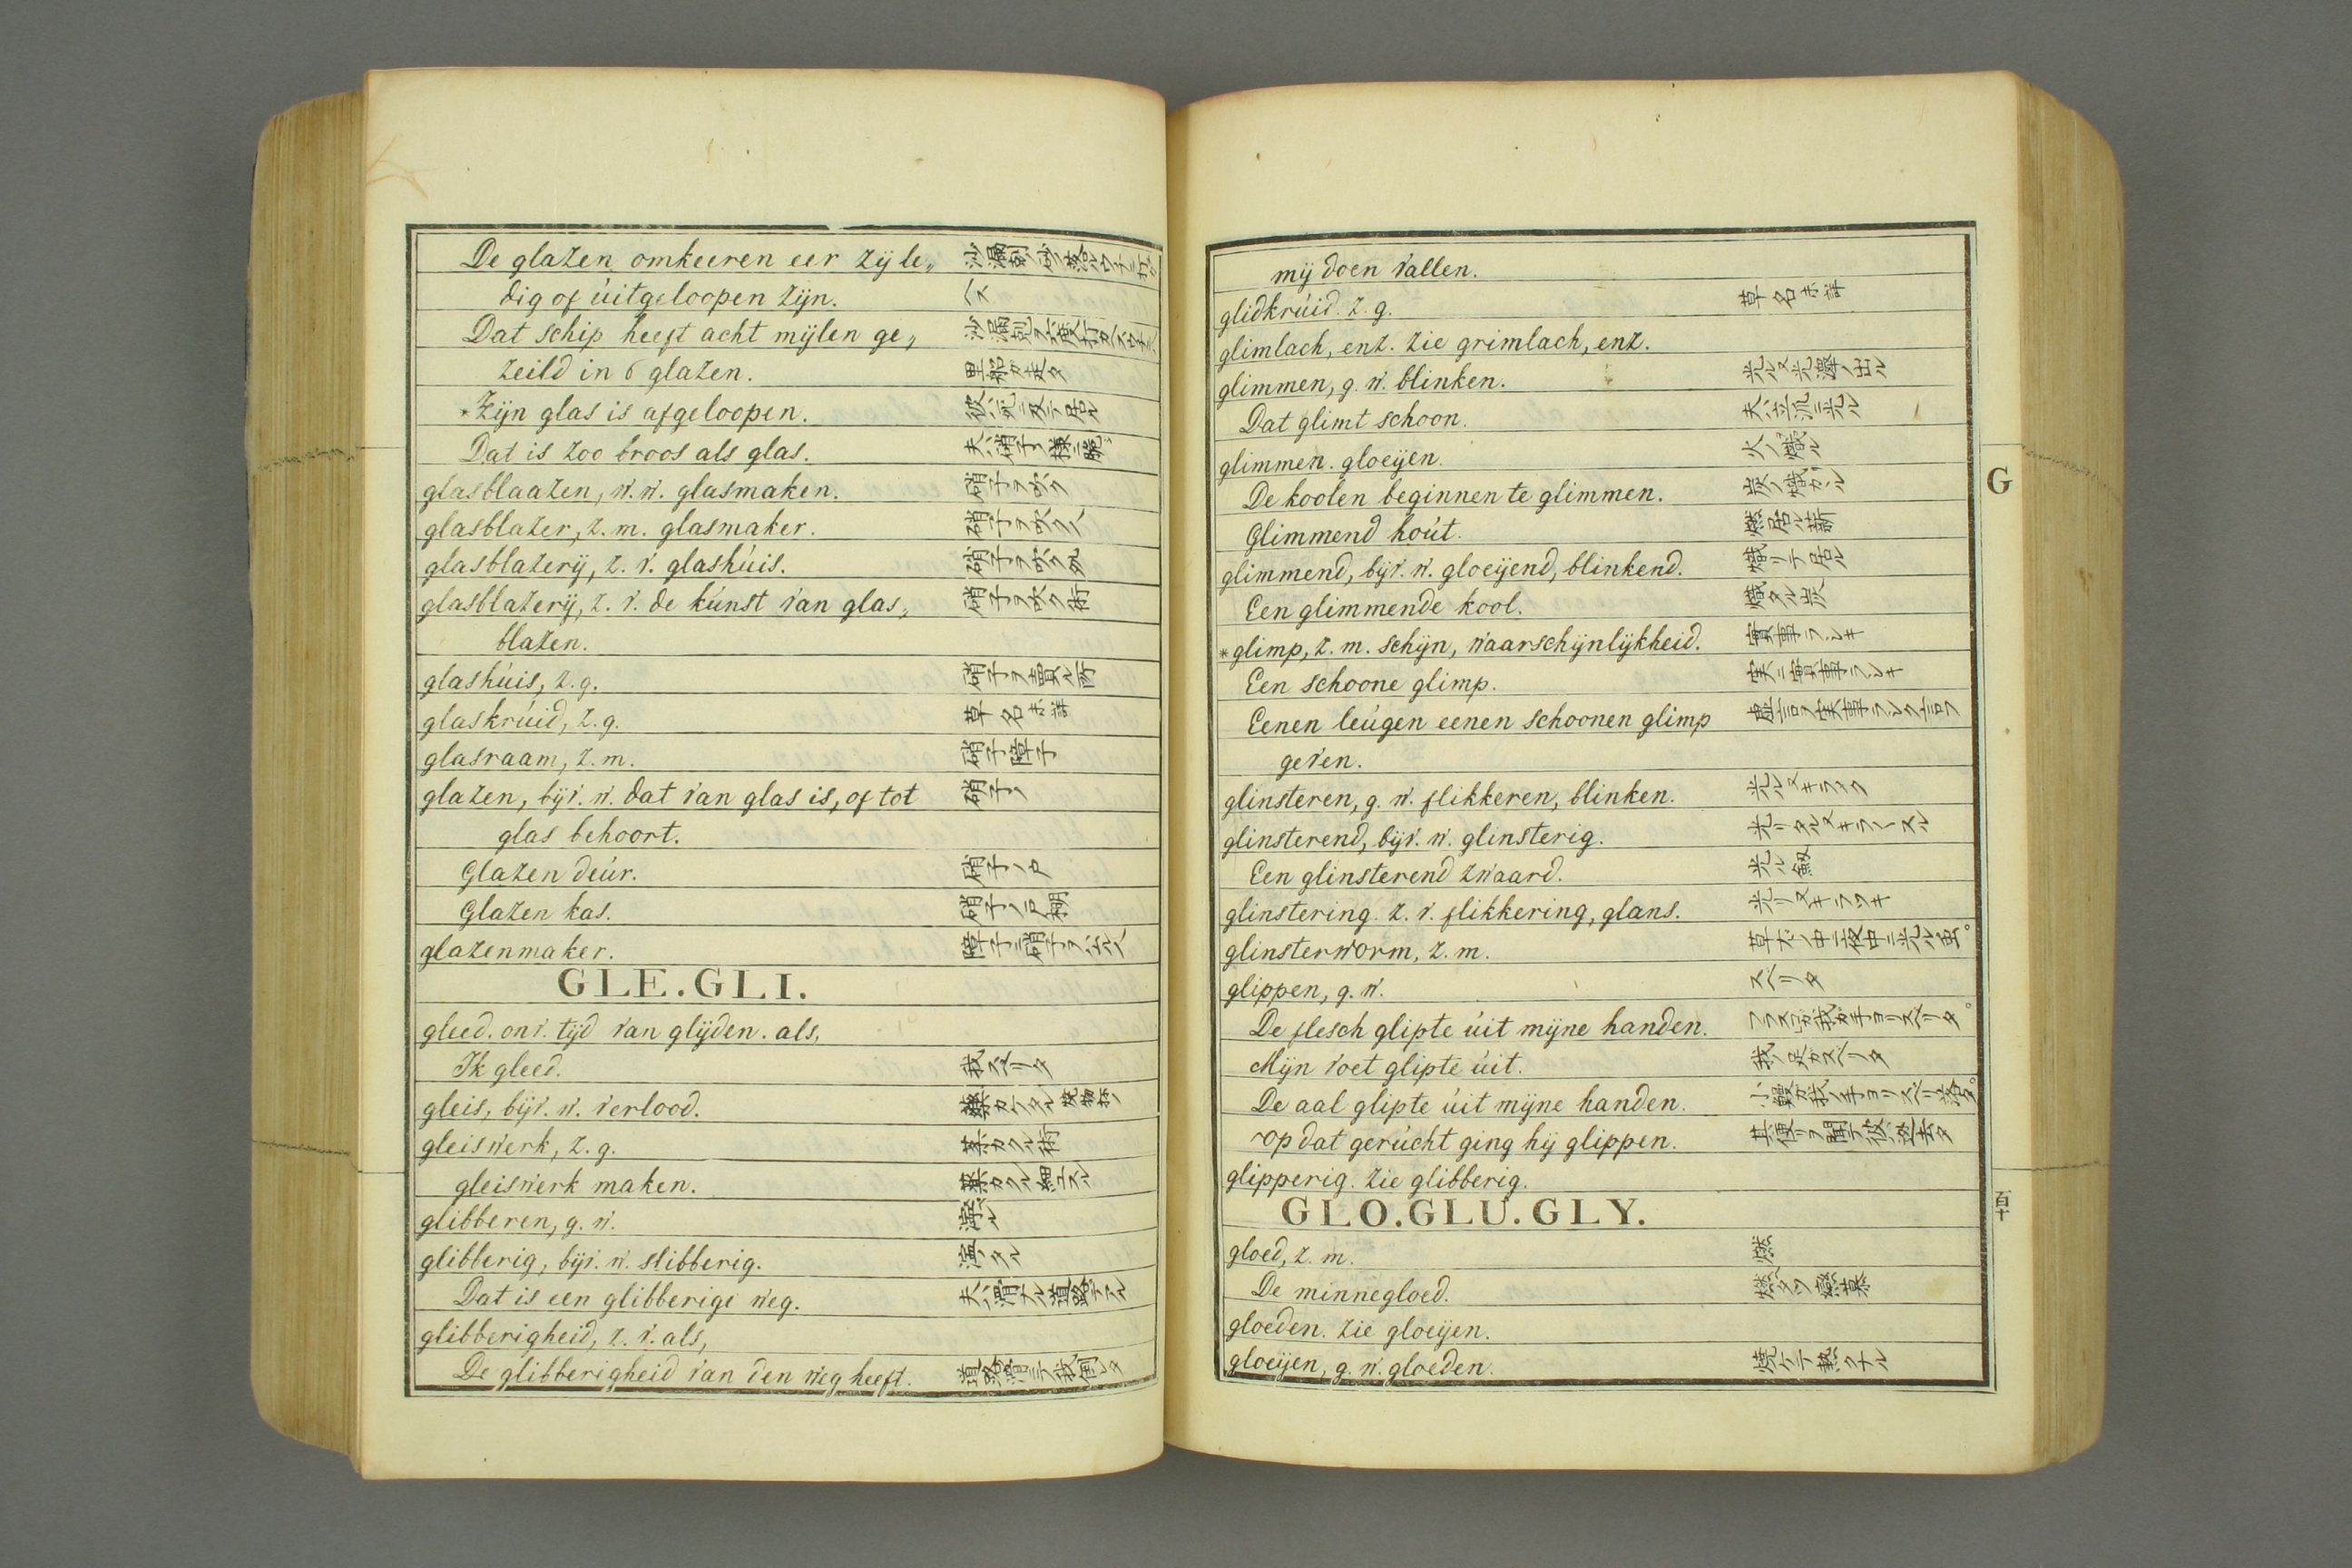 De glazen omkeeren eer zij le„
dig of úitgeloopen zijn.
Dat schip heeft acht mijlen ge„
zeild in 6 glazen. 里船ガ走タ
*Zijn glas is afgeloopen.
Dat is zoo broos als glas. 夫ハ硝子ノ様ニ脆シ
glasblaazen, w. w. glasmaken. 硝子ヲ吹ク
glasblazer, z. m. glasmaker. 硝子ヲ吹ク人
glasblazerij, z. v. glashúis. 硝子ヲ吹ク処
glasblazerij, z. v. de kúnst van glas„ 硝子ヲ吹ク術
blazen.
glashúis, z. g. 硝子ヲ賣ル所
glaskrúid, z. g. 草名未詳
glasraam, z. m. 硝子障子
glazen, bijv. w. dat van glas is, of tot 硝子ノ
glas behoort.
Glazen deúr. 硝子ノ戸
Glazen kas. 硝子ノ戸棚
glazenmaker.
GLE.GLI.
gleed. onv. tijd van glijden. als,
Ik gleed. 我スベリタ
gleis, bijv. w. verlood. 藥カケタル焼物抔ノ
gleiswerk, z. g.
gleiswerk maken.
glibberen, g. w. 滑ル
glibberig, bijv. w. slibberig.
Dat is een glibberige weg. 夫ハ滑ナル道路デアル
glibberigheid, z. v. als,
De glibberigheid van den weg heeft.
mij doen vallen.
glidkrúid. z. g. 草名未詳
glimlach, enz. zie grimlach, enz.
glimmen, g. w. blinken.
Dat glimt schoon. 夫ハ立派ニ光ル
glimmen. gloeijen. 火ノ熾ル
De koolen beginnen te glimmen.
Glimmend hoút. 燃居ル薪
glimmend, bijv. w. gloeijend, blinkend. 熾リテ居ル
Een glimmende kool. 熾タル炭
*glimp, z. m. schijn, waarschijnlijkheid. 實事ラシキ
Een schoone glimp. 実ニ實事ラシキ
Eenen leúgen eenen schoonen glimp 虚言ヲ実事ラシク言フ
geven.
glinsteren, g. w. flikkeren, blinken. 光ル又キラツク
glinsterend, bijv. w. glinsterig.
Een glinsterend zwaard. 光ル劔
glinstering. z. v. flikkering, glans. 光リ又キラツキ
glinsterworm, z. m.
glippen, g. w. スベリタ
De flesch glipte úit mijne handen. フラスコガ我ガ手ヨリスベリタ。
Mijn voet glipte úit. 我ノ足ガスベリタ
De aal glipte úit mijne handen. 小鰻ガ我ノ手ヨリスベリ落タ。
op dat gerúcht ging hij glippen.
glipperig. zie glibberig.
GLO.GLU.GLY.
gloed, z. m. 燃
De minnegloed.
gloeden. zie gloeijen.
gloeijen, g. w. gloeden. 焼ケテ熱クナル
G
百十